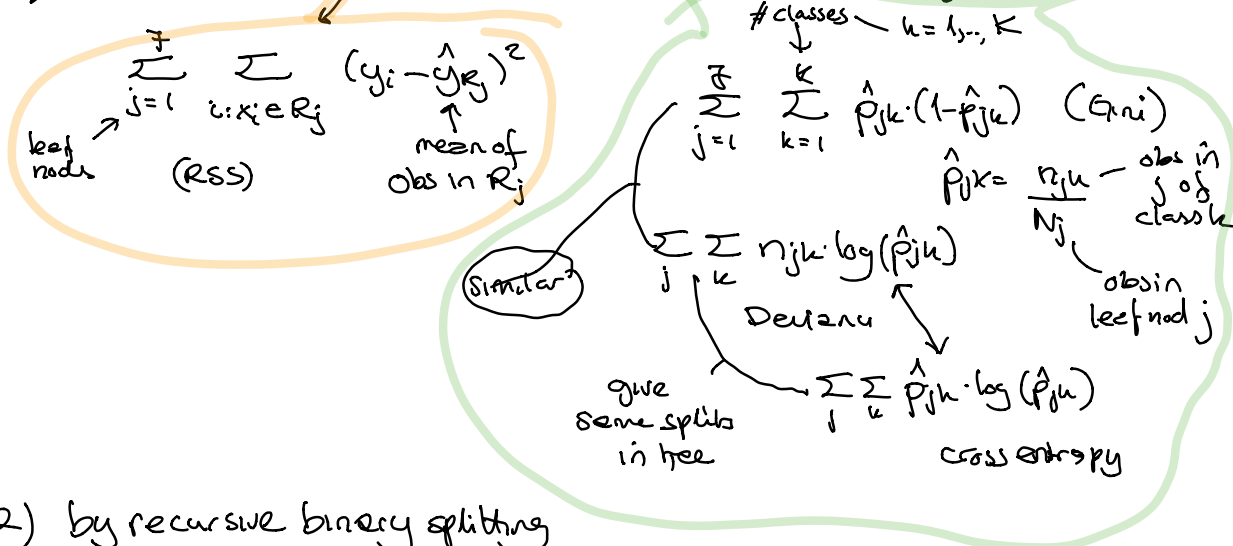 J
∑ ∑ (yi − ŷRj)²
j=1 i:xi∈Rj
leef nods
(RSS)
mean of
obs in Rj
# classes k=1,..,K
J K
∑ ∑ p̂jk·(1−p̂jk) (Gini)
j=1 k=1
p̂jk = njk / Nj
obs in
j of
class k
obs in
leef nod j
similar
∑j ∑k njk·log(p̂jk)
Deviance
give
same splits
in tree
∑j ∑k p̂jk·log(p̂jk)
cross entropy
2) by recursive binary splitting